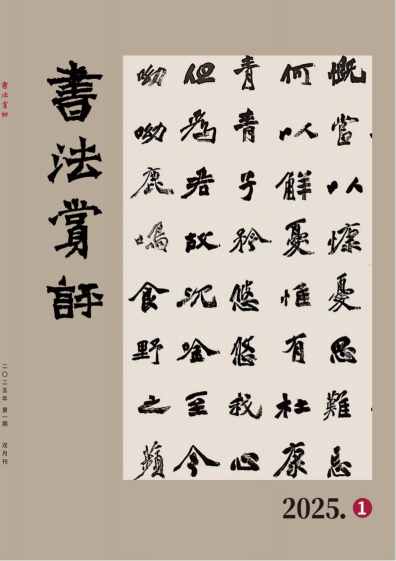 書法賞評
慨當以慷憂思難忘
何以解憂惟有杜康
青青子衿悠悠我心
但為君故沈吟至今
呦呦鹿鳴食野之蘋
2025. 1
書法賞評
二〇二五年 第一期 双月刊